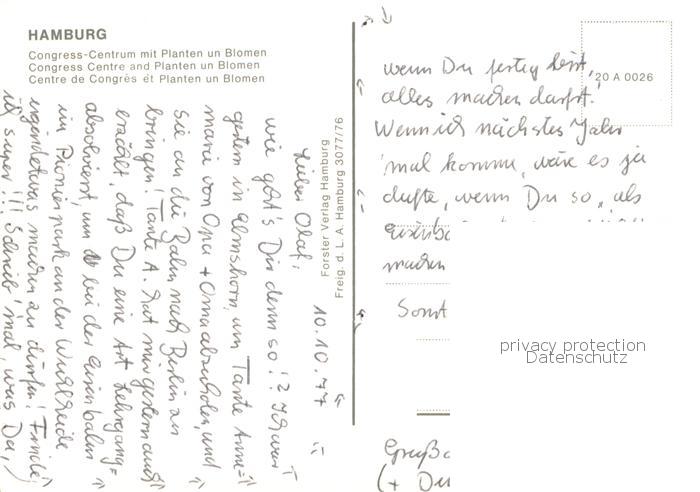 HAMBURG
Congress-Centrum mit Planten un Blomen
Congress Centre and Planten un Blomen
Centre de Congrès et Planten un Blomen
Forster Verlag Hamburg
Freig. d. L. A. Hamburg 3077/76
20 A 0026
10.10.77
Lieber Olaf,
wie geht's Dir denn so!? Ich war
gestern in Elmshorn, um Tante Anne=
marie von Opa + Oma abzuholen, und
sie an die Bahn nach Berlin zu
bringen! Tante A. hat mir gestern auch
erzählt, daß Du eine Art Lehrgang=
absolvierst, um bei der Eisenbahn
im Pionierpark an der Wuhlheide
irgendetwas machen zu dürfen! Finde
ich super!!! Schreib' mal, was Du,
wenn Du fertig bist,
alles machen darfst!
Wenn ich nächstes Jahr
'mal komme, wäre es ja
dufte, wenn Du so, als
machen
Sonst
(+ Du
privacy protection
Datenschutz